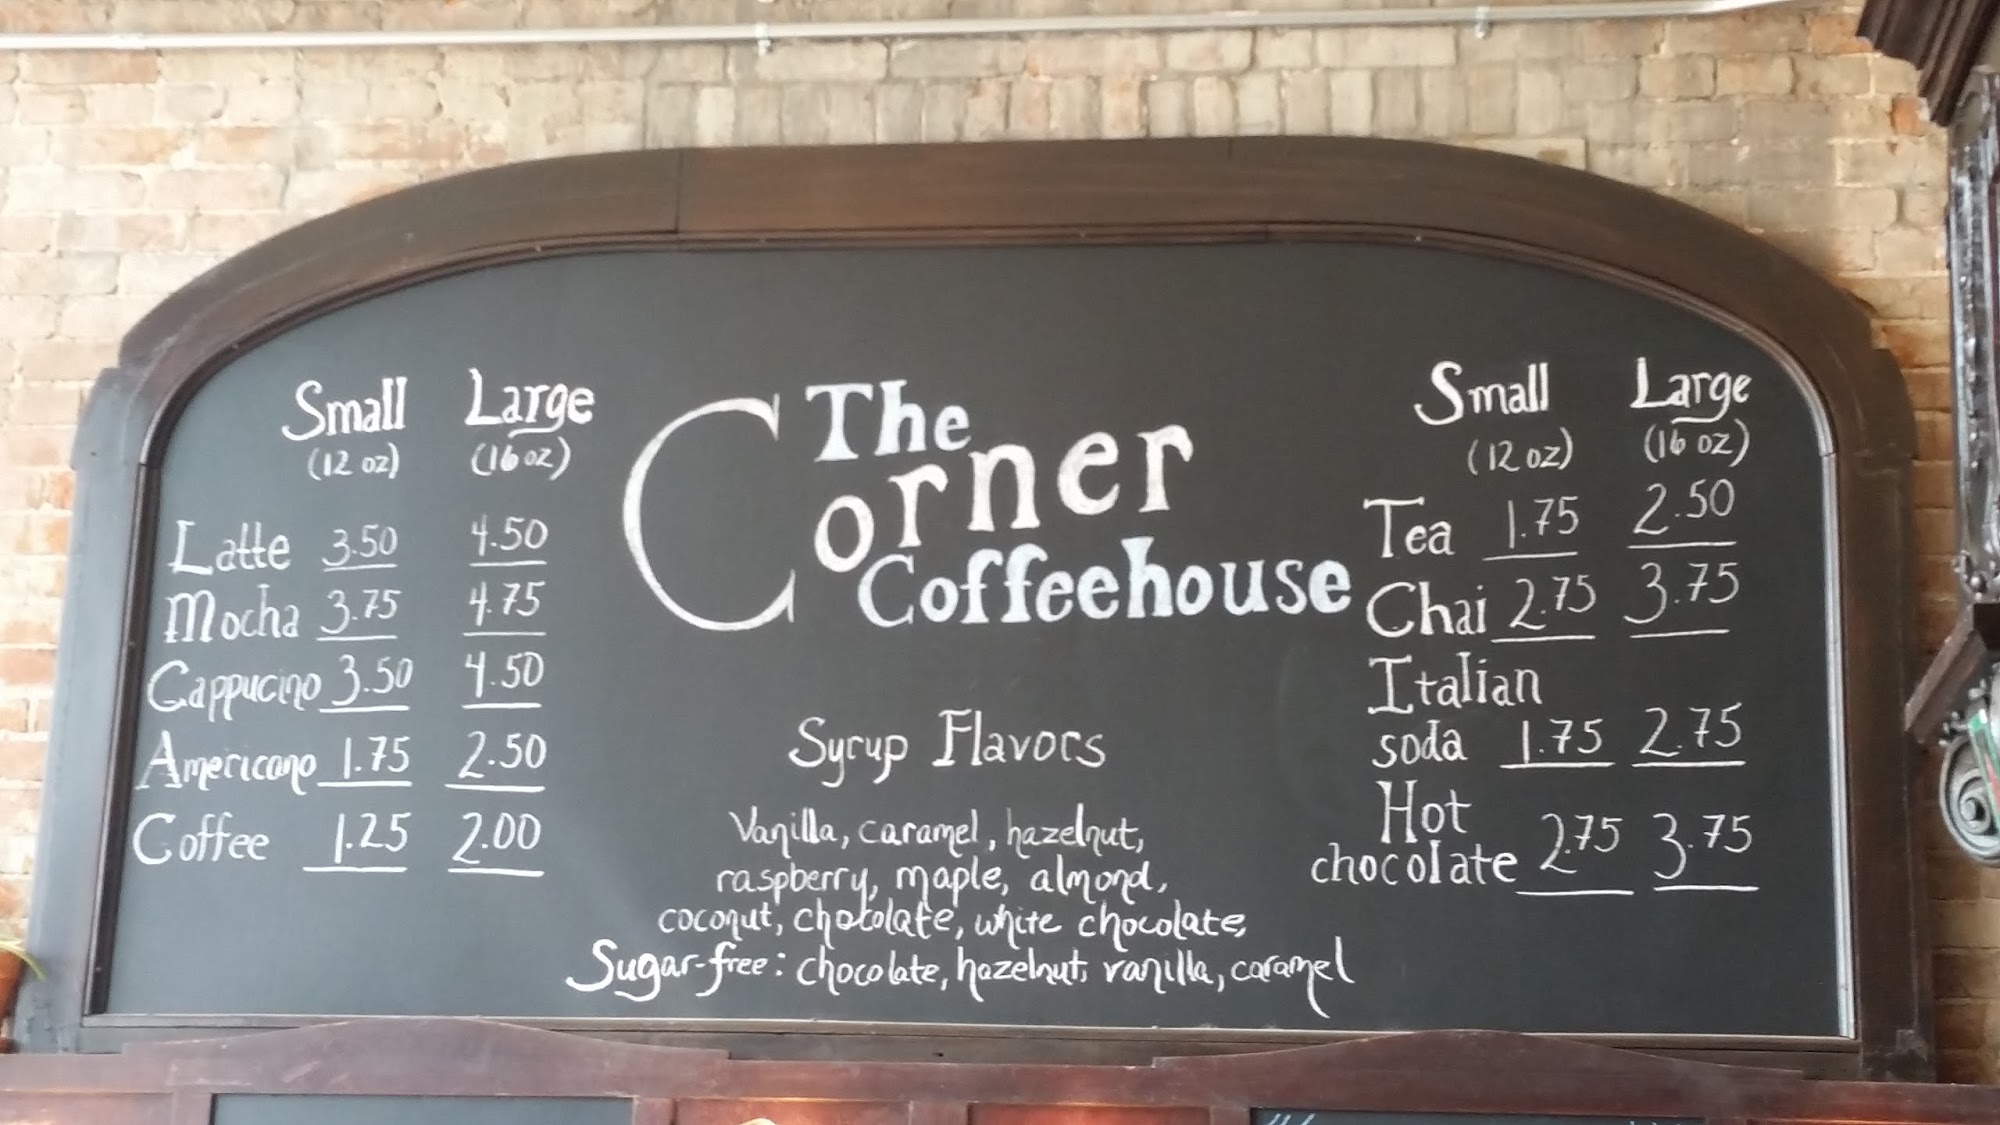 Small Large
(12 oz) (16 oz)
Latte 3.50 4.50
Mocha 3.75 4.75
Cappucino 3.50 4.50
Americano 1.75 2.50
Coffee 1.25 2.00
The
Corner
Coffeehouse
Syrup Flavors
Vanilla, caramel, hazelnut,
raspberry, maple, almond,
coconut, chocolate, white chocolate,
Sugar-free: chocolate, hazelnut, vanilla, caramel
Small Large
(12 oz) (16 oz)
Tea 1.75 2.50
Chai 2.75 3.75
Italian
soda 1.75 2.75
Hot
chocolate 2.75 3.75